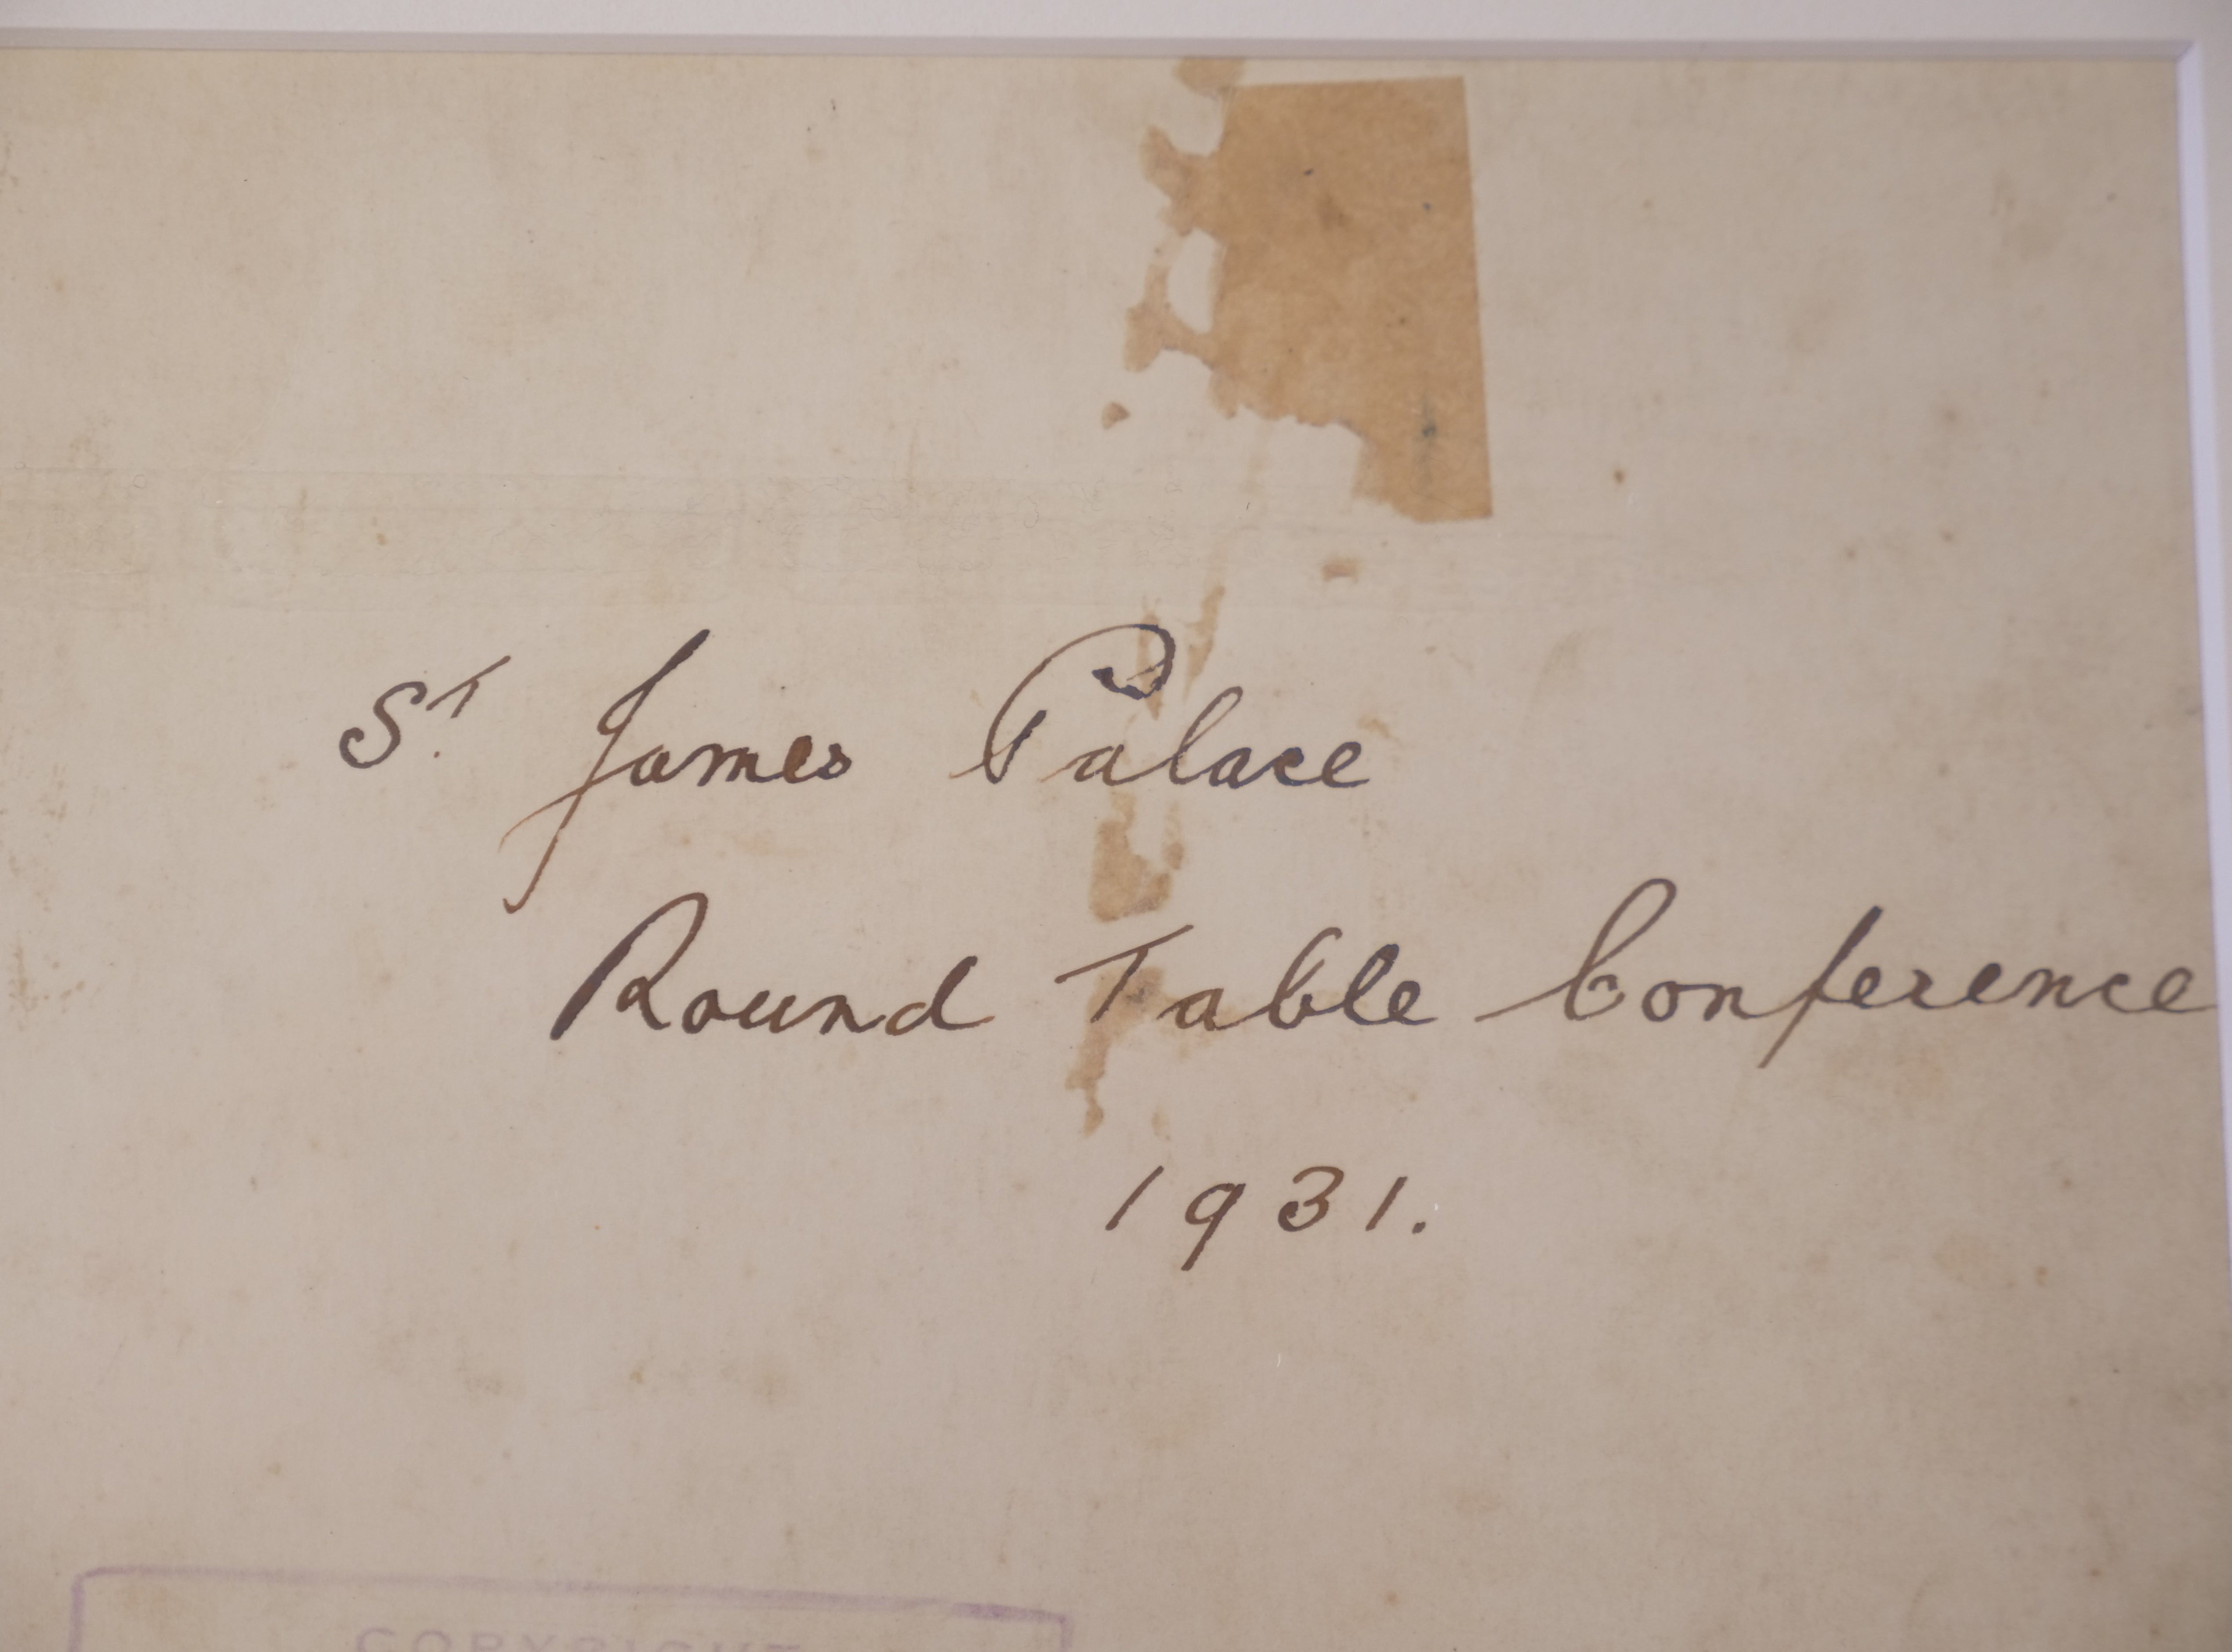 St. James Palace
Round Table Conference
1931.
COPYRIGHT